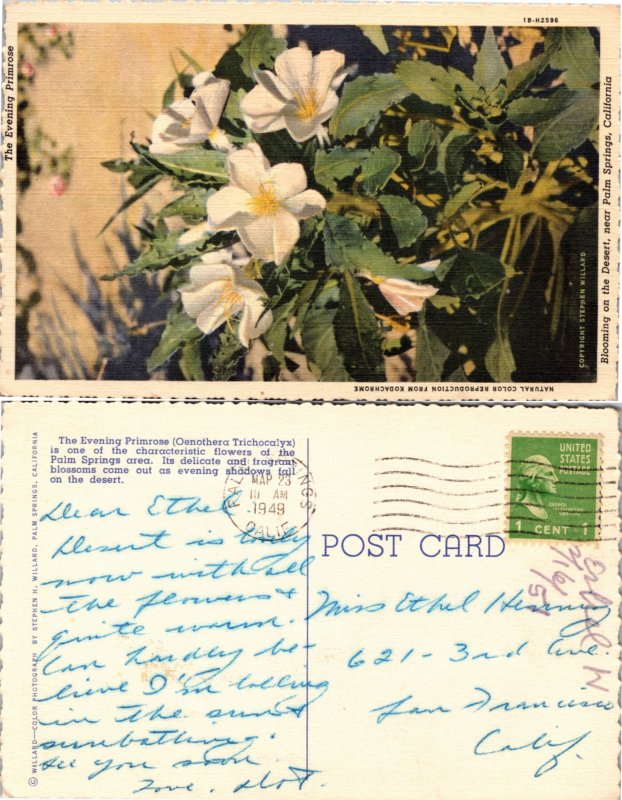 1B-H2596
The Evening Primrose
Blooming on the Desert, near Palm Springs, California
COPYRIGHT STEPHEN WILLARD
NATURAL COLOR REPRODUCTION FROM KODACHROME
The Evening Primrose (Oenothera Trichocalyx)
is one of the characteristic flowers of the
Palm Springs area. Its delicate and fragrant
blossoms come out as evening shadows fall
on the desert.
© WILLARD—COLOR PHOTOGRAPH BY STEPHEN H. WILLARD, PALM SPRINGS, CALIFORNIA
Dear Ethel
Desert is lovely
now with all
the flowers &
quite warm.
Can hardly be-
lieve I'm lolling
in the sun &
sunbathing.
See you soon.
Love, Dot.
PALM SPRINGS
MAR 23
10 AM
1949
CALIF.
UNITED
STATES
POSTAGE
GEORGE WASHINGTON
1 CENT 1
POST CARD
Miss Ethel
621 - 3rd Ave.
San Francisco
Calif.